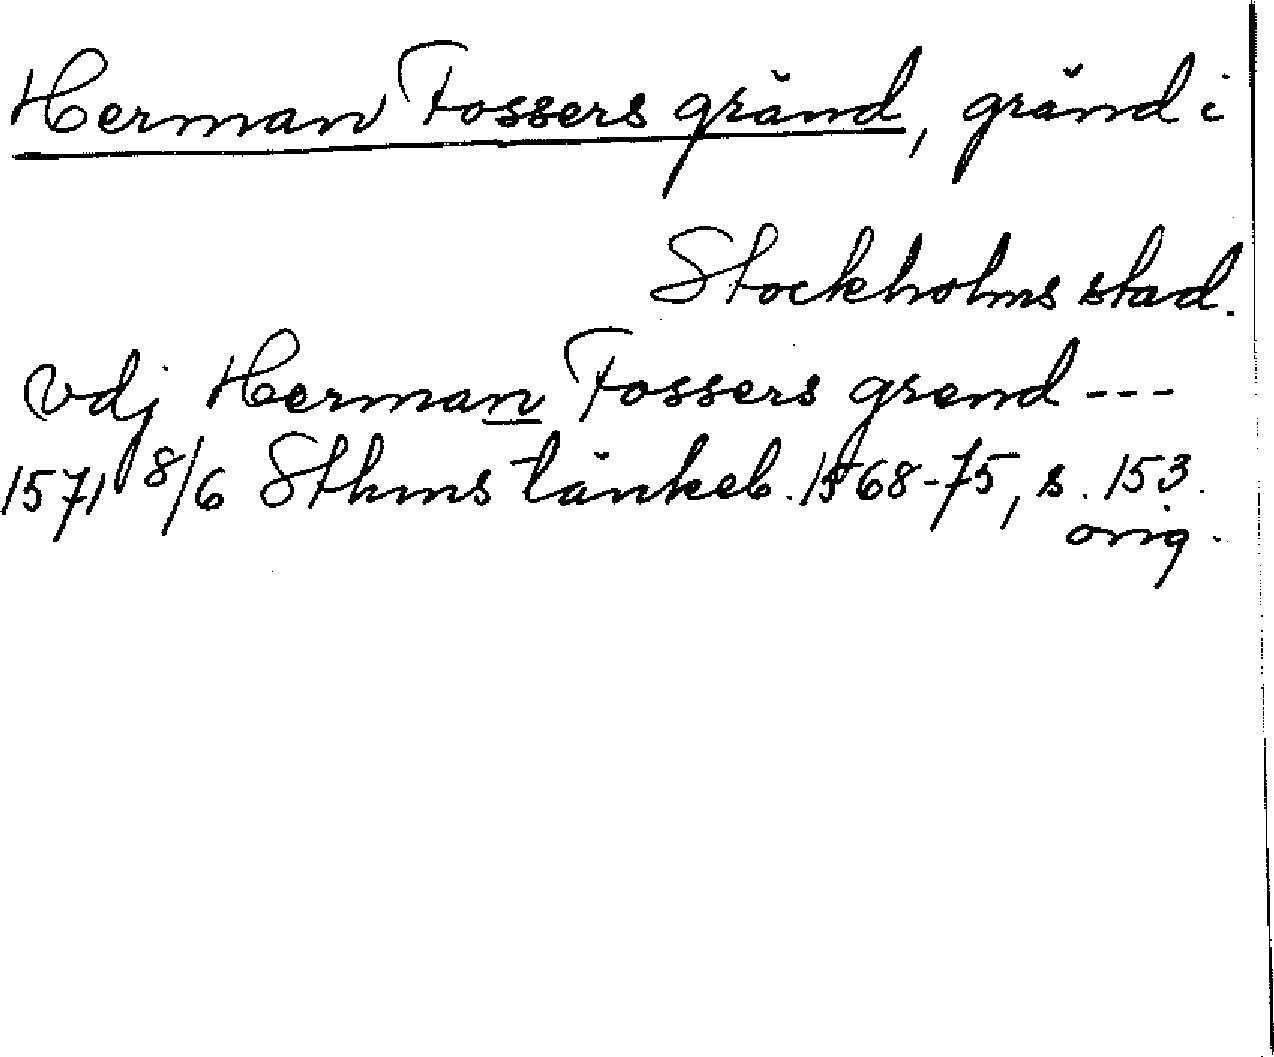 Herman Fossers gränd, gränd i
Stockholms stad.
Vdj Herman Fossers grend ---
1571 8/6 Sthms tänkeb. 1568-75, s. 153.
orig.